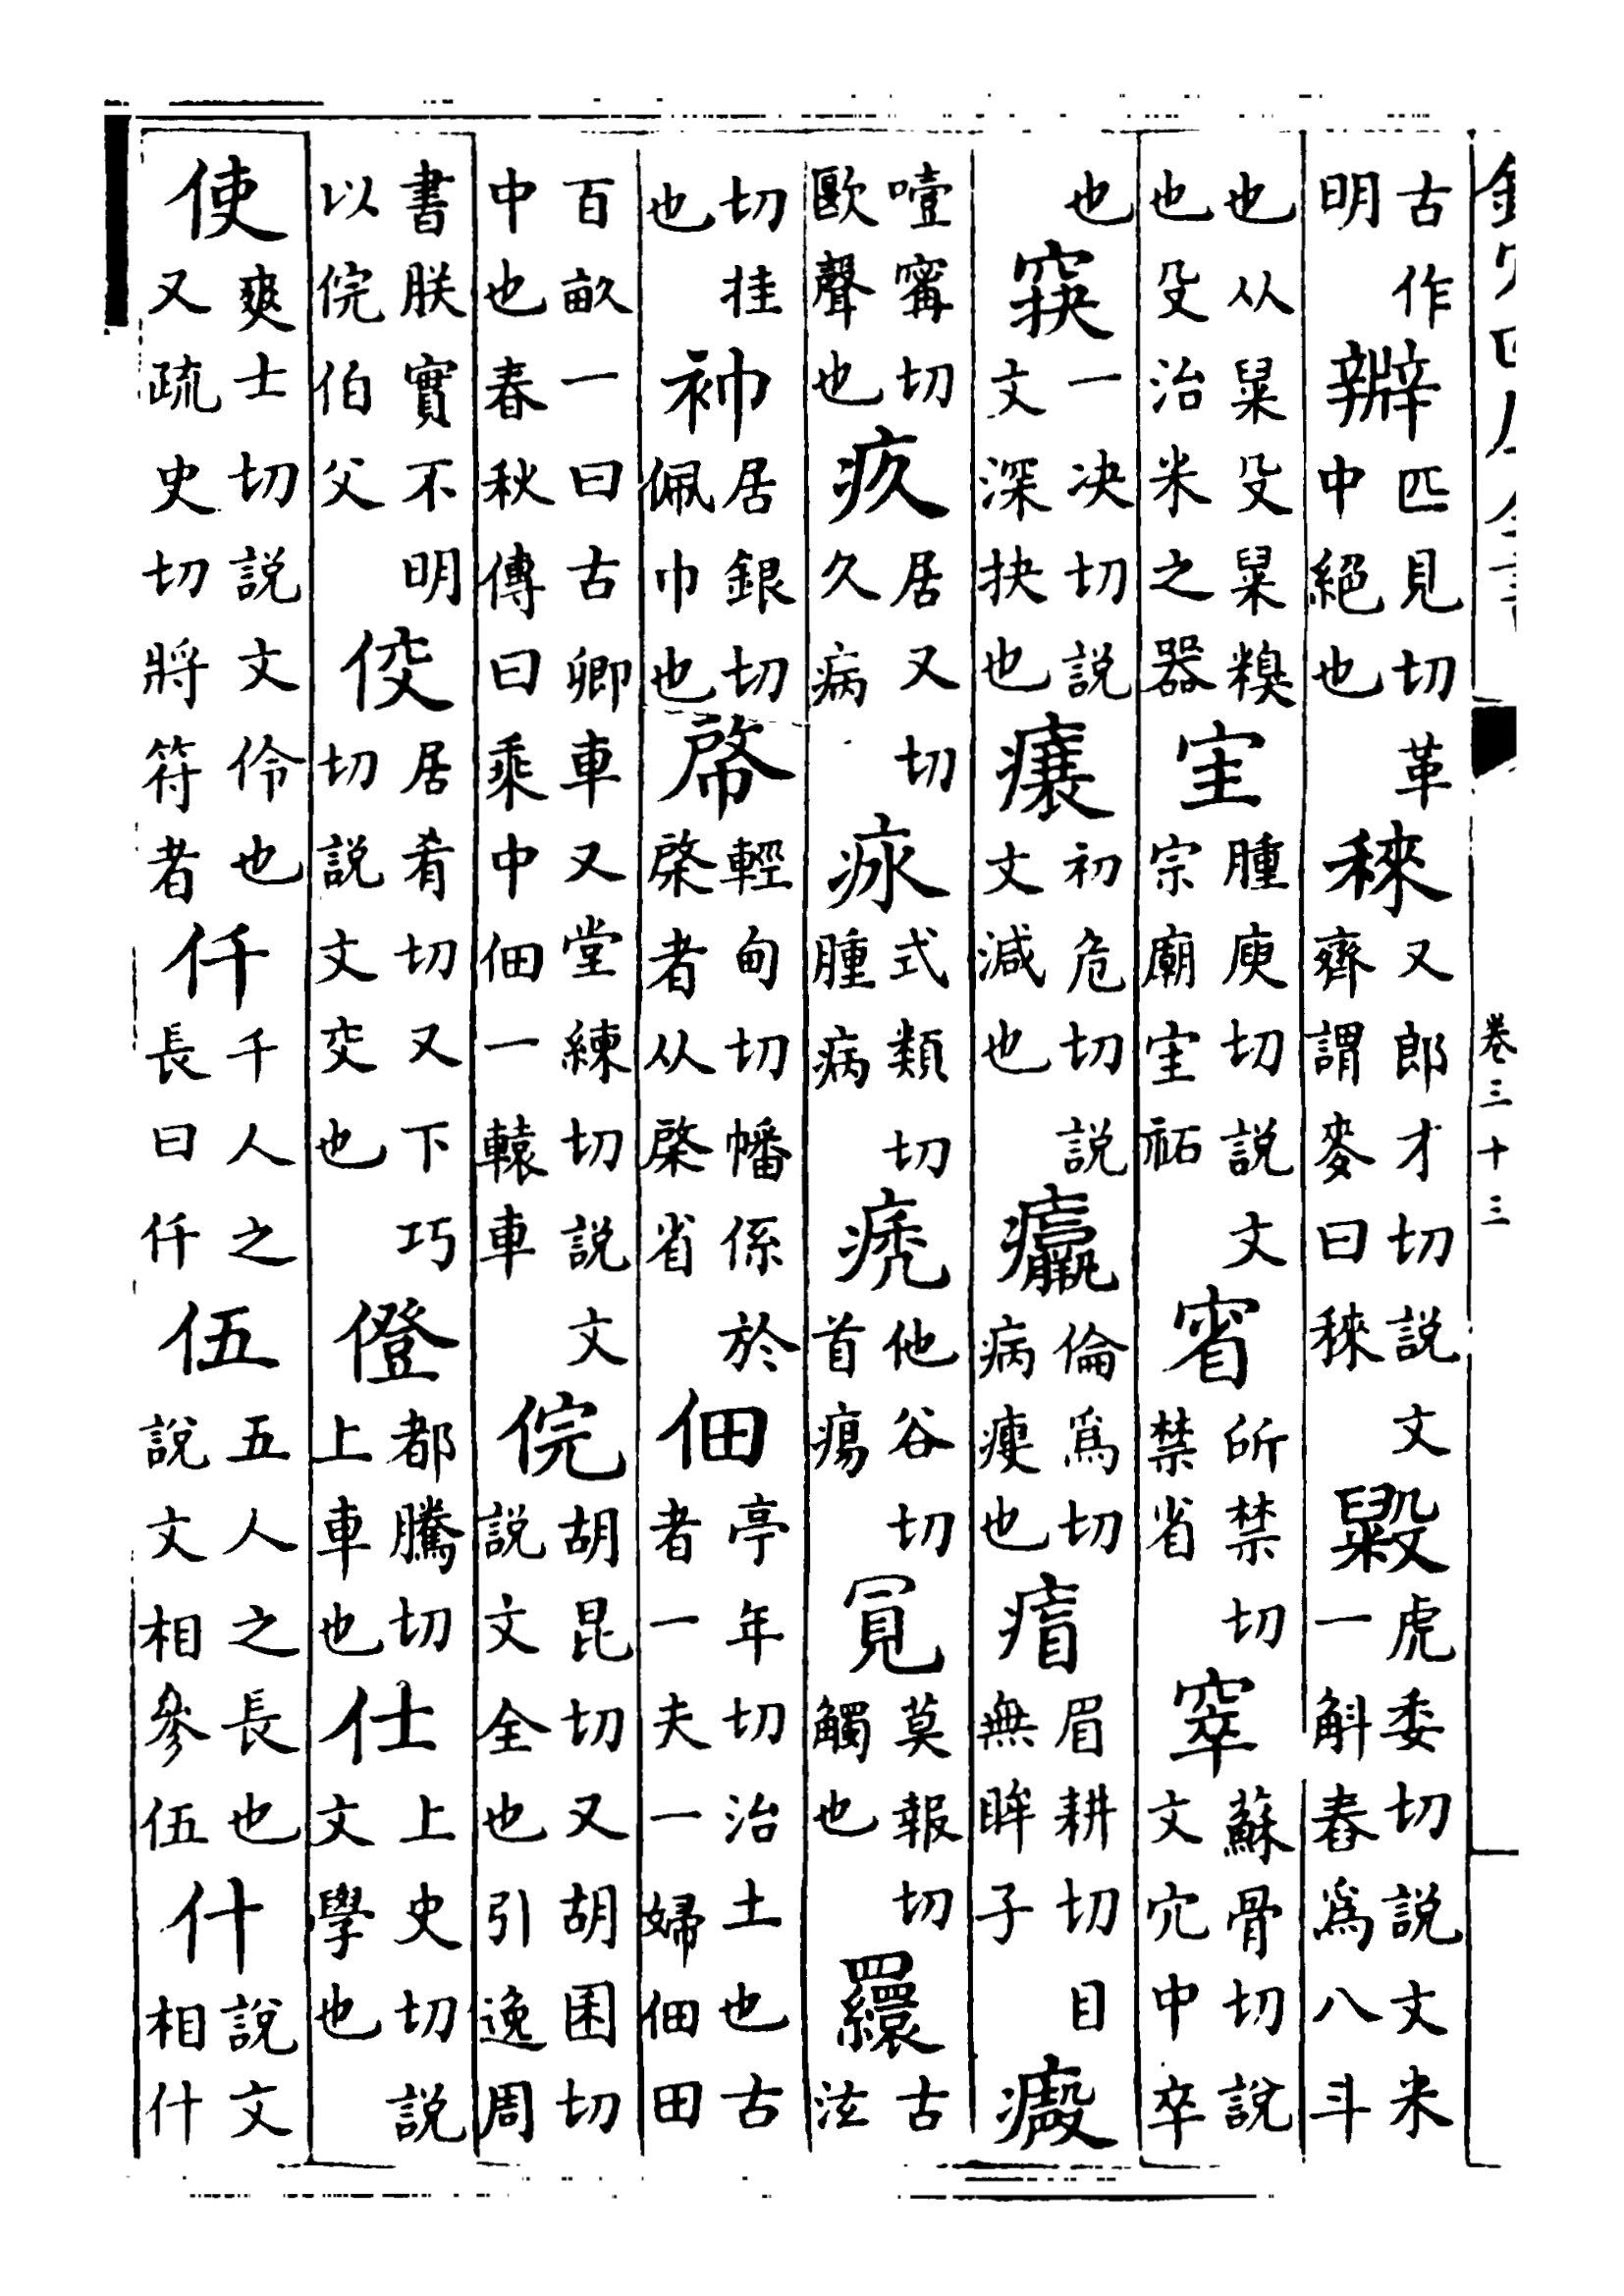 卷三十三
古作
明
辧
匹見切革
中絕也
䅘
又郎才切説文
齊謂麥曰䅘
毇
虎委切説文米
一斛舂爲八斗
也从䊆殳䊆糗
也殳治米之器
宔
腫庾切説文
宗廟宔祏
所禁切
禁省
窣
蘇骨切説
文穴中卒
也
一决切説
文深抉也
𤸬
初危切説
文減也
𤼣
倫爲切
病瘦也
眉耕切目
無眸子
噎甯切
歐聲也
疚
居又切
久病
式類切
腫病
痜
他谷切
首瘍
莫報切
觸也
古
泫
切挂
也
居銀切
佩巾也
輕甸切幡係於
棨者从棨省
佃
亭年切治土也古
者一夫一婦佃田
百畝一曰古卿車又堂練切説文
中也春秋傳曰乘中佃一轅車
俒
胡昆切又胡困切
説文全也引逸周
書朕實不明
以俒伯父
㑾
居肴切又下巧
切説文交也
僜
都騰切
上車也
仕
上史切説
文學也
使
爽士切説文伶也
又疏史切將符者
仟
千人之
長曰仟
伍
五人之長也
説文相參伍
什
説文
相什